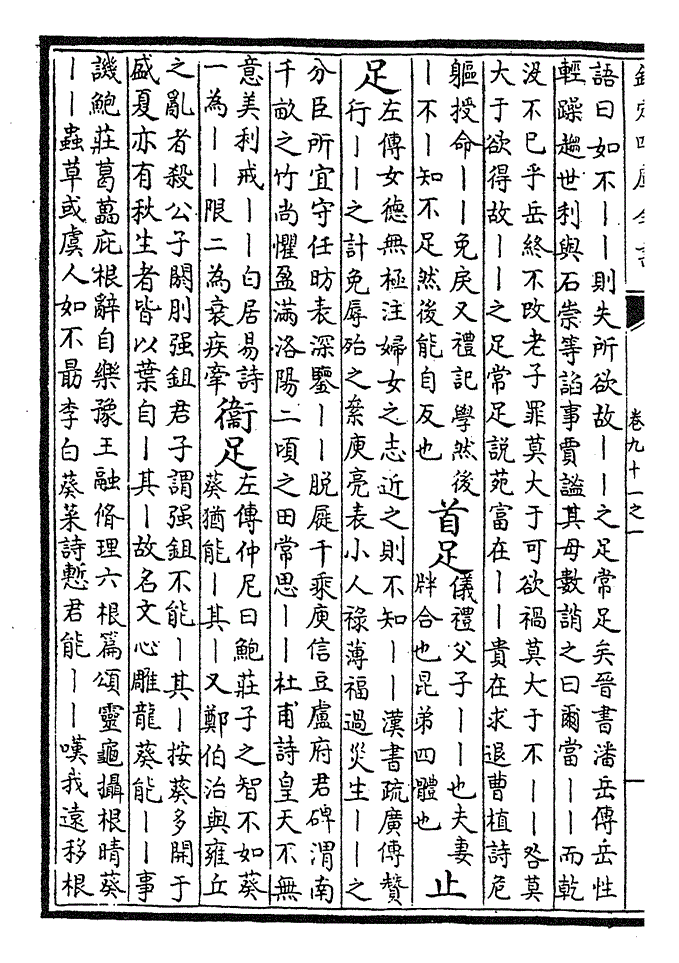 欽定四庫全書
卷九十一之一
語曰如不丨丨則失所欲故丨丨之足常足矣晉書潘岳傳岳性
輕躁趨世利與石崇等諂事賈謐其母數誚之曰爾當丨丨而乾
没不已乎岳終不改老子罪莫大于可欲禍莫大于不丨丨咎莫
大于欲得故丨丨之足常足說苑富在丨丨貴在求退曹植詩危
軀授命丨丨免戾又禮記學然後
丨不丨知不足然後能自反也
首足
儀禮父子丨丨也夫妻
牉合也昆弟四體也
止
足
左傳女德無極注婦女之志近之則不知丨丨漢書疏廣傳贊
行丨丨之計免辱殆之絫庾亮表小人祿薄福過災生丨丨之
分臣所宜守任昉表深鑒丨丨脫屣千乘庾信豆盧府君碑渭南
千畝之竹尚懼盈滿洛陽二頃之田常思丨丨杜甫詩皇天不無
意美利戒丨丨白居易詩
一為丨丨限二為衰疾牽
衞足
左傳仲尼曰鮑莊子之智不如葵
葵猶能丨其丨又鄭伯治與雍丘
之亂者殺公子閼刖强鉏君子謂强鉏不能丨其丨按葵多開于
盛夏亦有秋生者皆以葉自丨其丨故名文心雕龍葵能丨丨事
譏鮑莊葛藟庇根辭自樂豫王融脩理六根篇頌靈龜攝根晴葵
丨丨蟲草或虞人如不朂李白葵葉詩慙君能丨丨嘆我遠移根